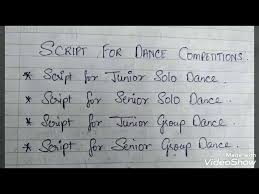 SCRIPT FOR DANCE COMPETITIONS.
* Script for Junior Solo Dance.
* Script for Senior Solo Dance.
* Script for Junior Group Dance.
* Script for Senior Group Dance.
Made with
VideoShow